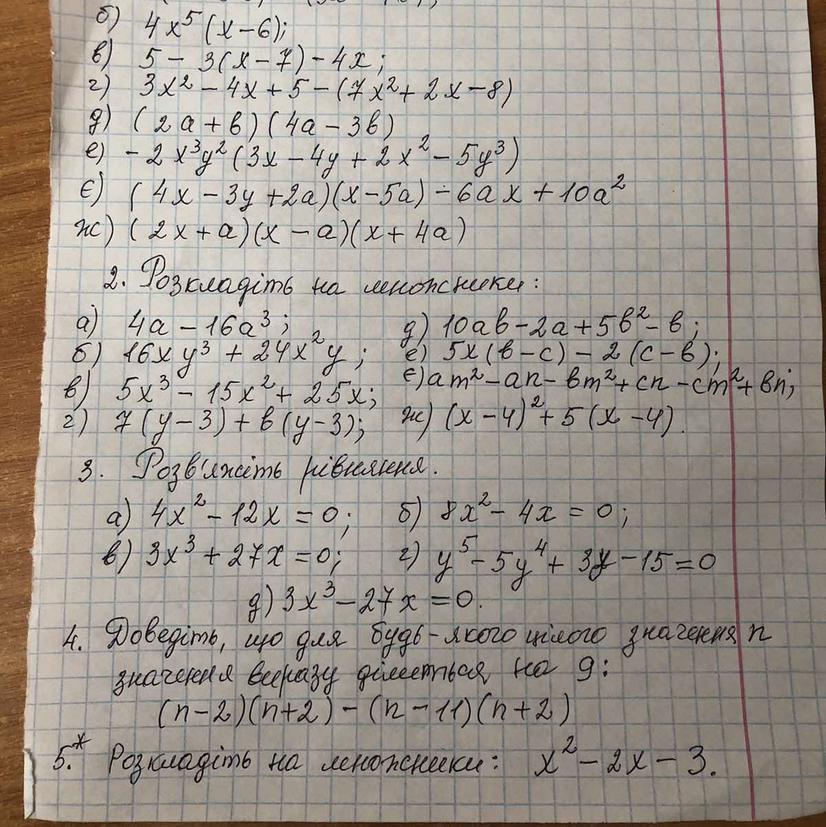 б) 4x⁵(x-6);
в) 5 - 3(x-7) - 4x;
г) 3x² - 4x + 5 - (7x² + 2x - 8)
д) (2a + b)(4a - 3b)
е) - 2x³y²(3x - 4y + 2x² - 5y³)
є) (4x - 3y + 2a)(x - 5a) - 6ax + 10a²
ж) (2x + a)(x - a)(x + 4a)
2. Розкладіть на множники:
а) 4a - 16a³; д) 10ab - 2a + 5b² - b;
б) 16xy³ + 24x²y; е) 5x(b-c) - 2(c-b);
в) 5x³ - 15x² + 25x; є) am² - an - bm² + cn - cm² + bn;
г) 7(y-3) + b(y-3); ж) (x-4)² + 5(x-4).
3. Розв'яжіть рівняння.
а) 4x² - 12x = 0; б) 8x² - 4x = 0;
в) 3x³ + 27x = 0; г) y⁵ - 5y⁴ + 3y - 15 = 0
д) 3x³ - 27x = 0.
4. Доведіть, що для будь-якого цілого значення n
значення виразу ділиться на 9:
(n-2)(n+2) - (n-11)(n+2)
5.* Розкладіть на множники: x² - 2x - 3.